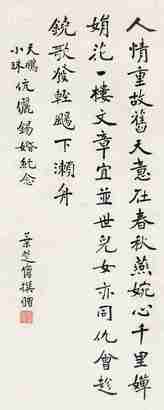 人情重故舊天意在春秋燕婉心千里嬋
娟花一樓文章宜並世兒女亦同仇會趁
鐃歌發輕颺下瀨舟
天鵬
小珠
伉儷錫婚紀念
葉芝撰